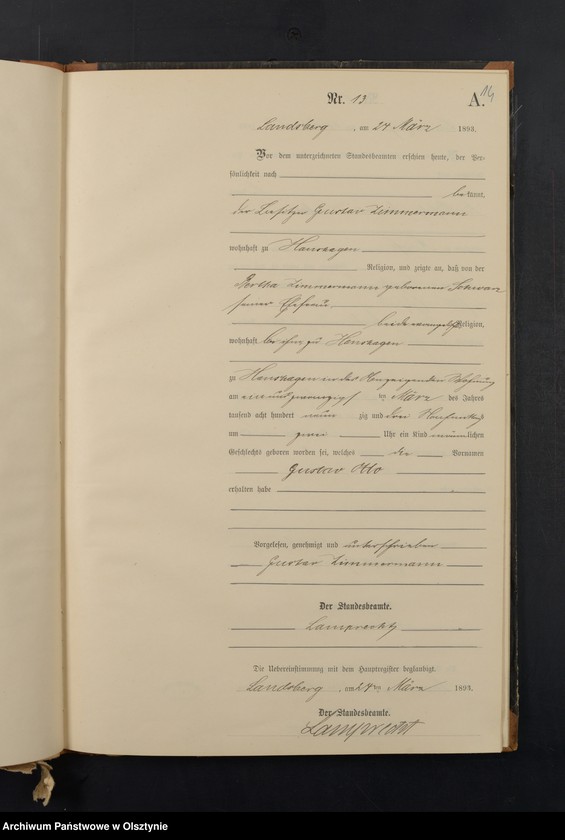 Nr. 13
A. 14
Landsberg, am 24 März 1893.
Vor dem unterzeichneten Standesbeamten erschien heute, der Per-
sönlichkeit nach
bekannt,
der Besitzer Gustav Zimmermann
wohnhaft zu Hanshagen
Religion, und zeigte an, daß von der
Bertha Zimmermann geborenen Schwarz
seiner Ehefrau
beide evangelisch Religion,
wohnhaft bei ihm zu Hanshagen
zu Hanshagen in der Wohnung
am ein und zwanzigsten März des Jahres
tausend acht hundert neun zig und drei Nachmittags
um zwei Uhr ein Kind männlichen
Geschlechts geboren worden sei, welches die Vornamen
Gustav Otto
erhalten habe
Vorgelesen, genehmigt und unterschrieben
Gustav Zimmermann
Der Standesbeamte.
Lamprecht
Die Uebereinstimmung mit dem Hauptregister beglaubigt.
Landsberg, am 24ten März 1893.
Der Standesbeamte.
Lamprecht
Archiwum Państwowe w Olsztynie